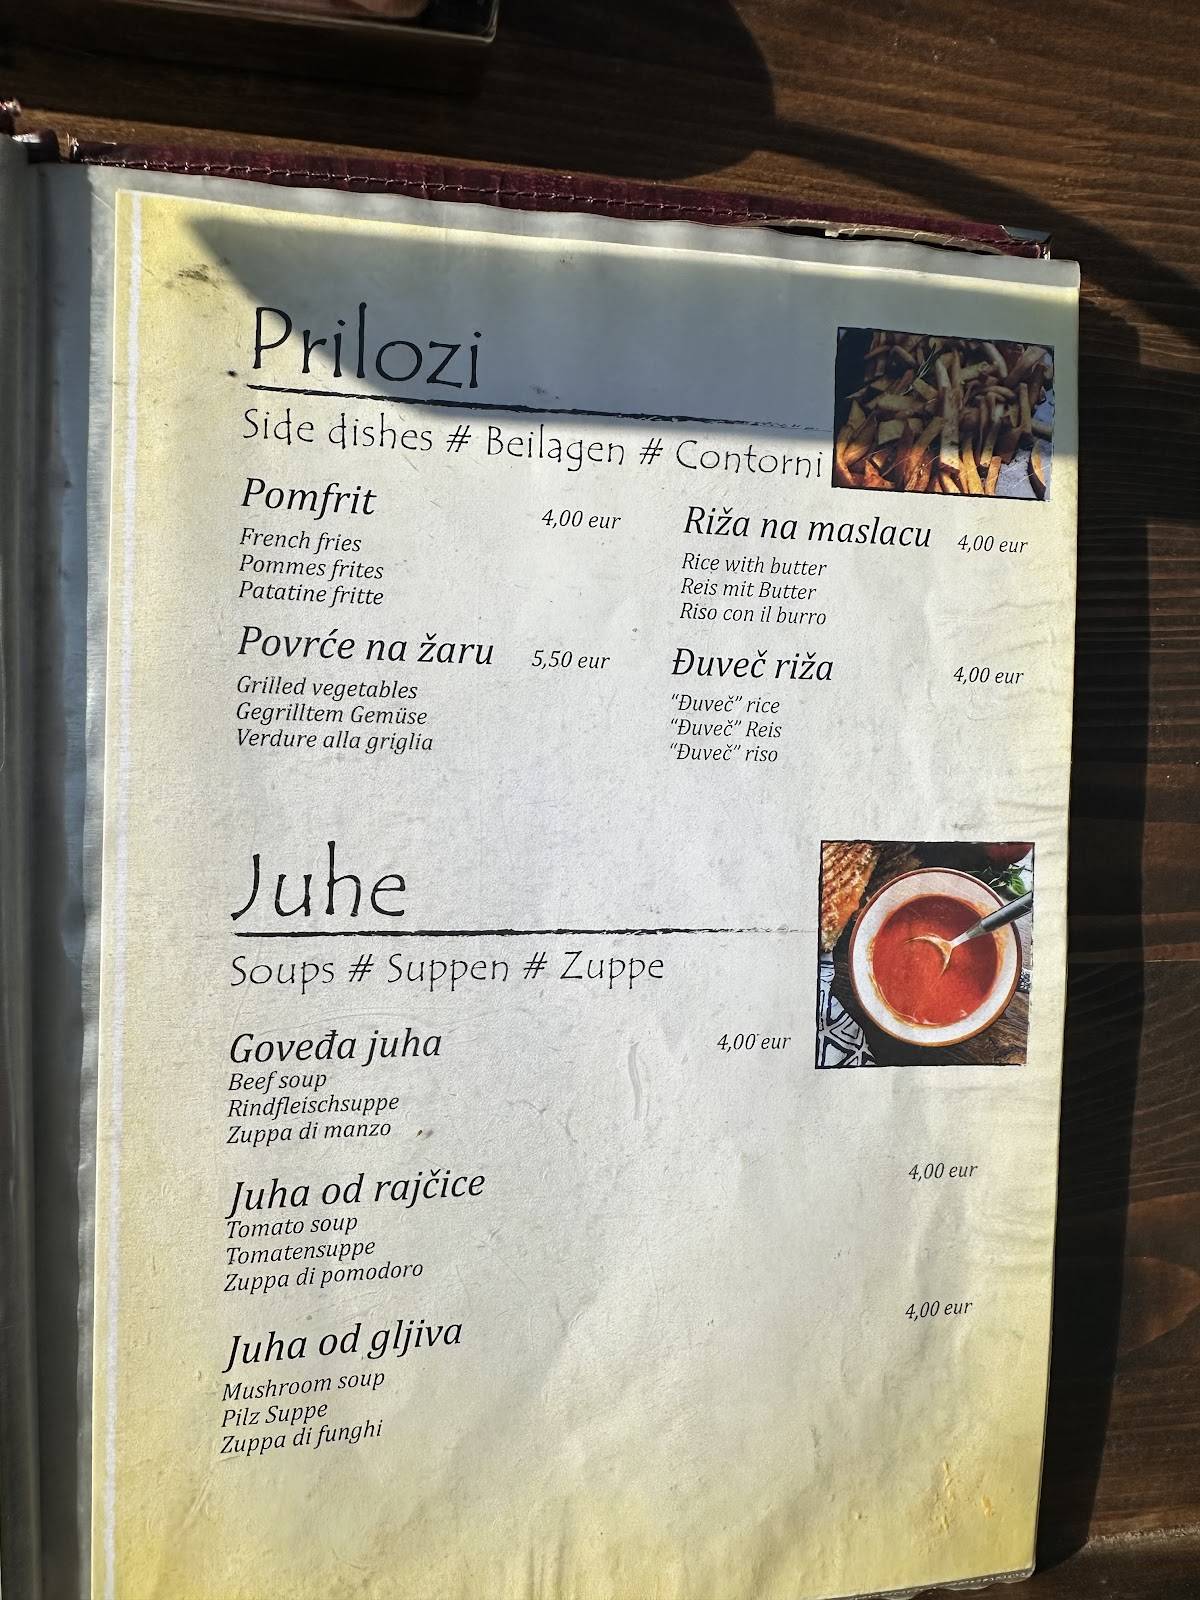 Prilozi
Side dishes # Beilagen # Contorni
Pomfrit 4,00 eur
French fries
Pommes frites
Patatine fritte
Povrće na žaru 5,50 eur
Grilled vegetables
Gegrilltem Gemüse
Verdure alla griglia
Riža na maslacu 4,00 eur
Rice with butter
Reis mit Butter
Riso con il burro
Đuveč riža 4,00 eur
“Đuveč” rice
“Đuveč” Reis
“Đuveč” riso
Juhe
Soups # Suppen # Zuppe
Goveđa juha 4,00 eur
Beef soup
Rindfleischsuppe
Zuppa di manzo
Juha od rajčice 4,00 eur
Tomato soup
Tomatensuppe
Zuppa di pomodoro
Juha od gljiva 4,00 eur
Mushroom soup
Pilz Suppe
Zuppa di funghi